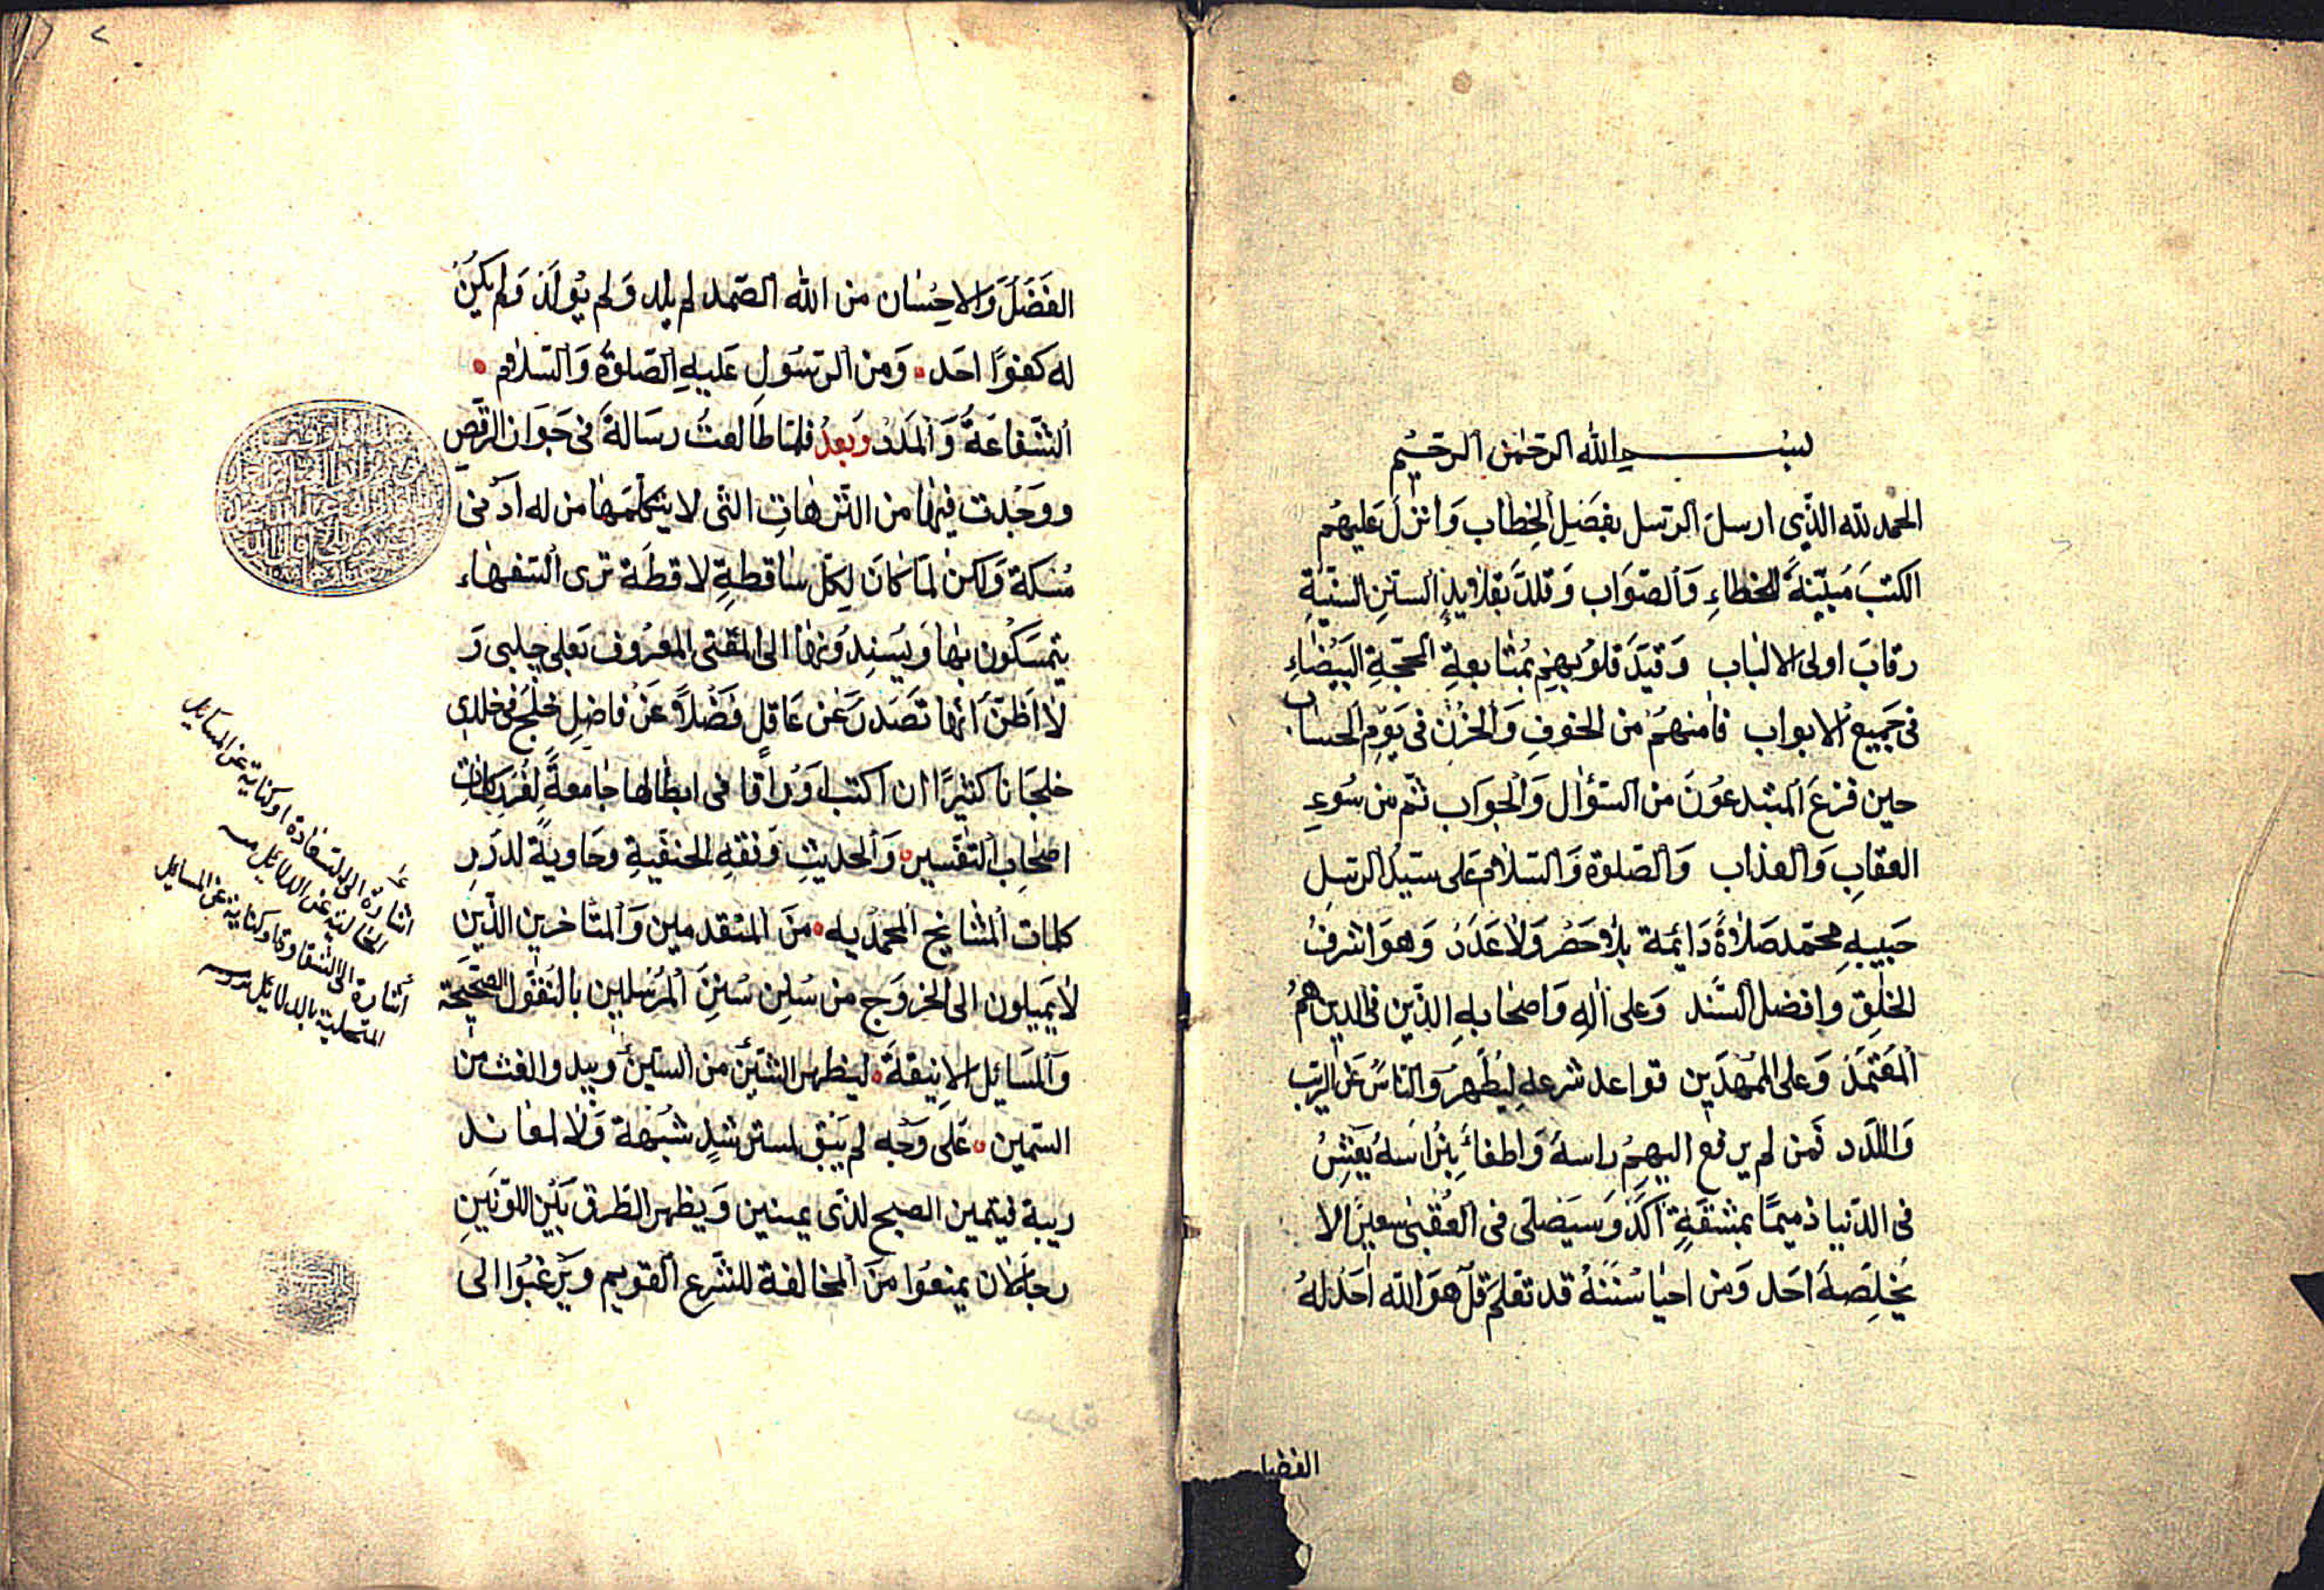 بسم الله الرحمن الرحيم
الحمد لله الذى ارسل الرسل بفضل الخطاب وانزل عليهم
الكتب مبينة للخطاء والصواب وقلد بقلايد السنن السنية
رقاب اولى الالباب وقيد قلوبهم بمتابعة المحجة البيضاء
فى جميع الابواب فامنهم من الخوف والحزن فى يوم الحساب
حين فزع المبتدعون من السؤال والجواب ثم من سوء
العقاب والعذاب والصلوة والسلام على سيد الرسل
حبيبه محمد صلاة دائمة بلا حصر ولا عدد وهو اشرف
الخلق وافضل السند وعلى اله واصحابه الذين فى الدين هم
المعتمد وعلى الممهدين قواعد شرعه ليطهر والناس عن الريب
واللدد فمن لم يرفع اليهم راسه واطفاء نبراسه يعش
فى الدنيا ذميما بمشقة اكد وسيصلى فى العقبى سعيرا لا
يخلصه احد ومن احيا سننه قد تعلم قل هو الله احد له
الفضل
الفضل والاحسان من الله الصمد لم يلد ولم يولد ولم يكن
له كفوا احد ومن الرسول عليه الصلوة والسلام
الشفاعة والمدد وبعد فلما طالعت رسالة فى جواز الرقص
ووجدت فيها من الترهات التى لا يتكلمها من له ادنى
مسكة ولكن لما كان لكل ساقطة لاقطة ترى السفهاء
يتمسكون بها ويسندونها الى المفتى المعروف بعلى چلبى و
لا اظن انها تصدر عن عاقل فضلا عن فاضل خلج فى خلدى
خلجانا كثيرا ان اكتب اوراقا فى ابطالها جامعة لغرر كلمات
اصحاب التفسير والحديث وفقه الحنفية وحاوية لدرر
كلمات المشايخ المحمديه من المتقدمين والمتاخرين الذين
لا يميلون الى الخروج من سنن سنن المرسلين بالنقول الصحيحة
والمسائل الانيقة ليظهر الشين من السين ويبدو الغث من
السمين على وجه لم يبق لمسترشد شبهة ولا لمعاند
ريبة فيتميز الصبح لذى عينين ويظهر الطرق بين اللونين
رجاء لان يمنعوا من المخالفة للشرع القويم ويرغبوا الى
اشارة الى السعادة او كناية عن المسائل
الخالية عن الدلائل منه
اشارة الى الشقاوة او كناية عن المسائل
المتحلية بالدلائل منه